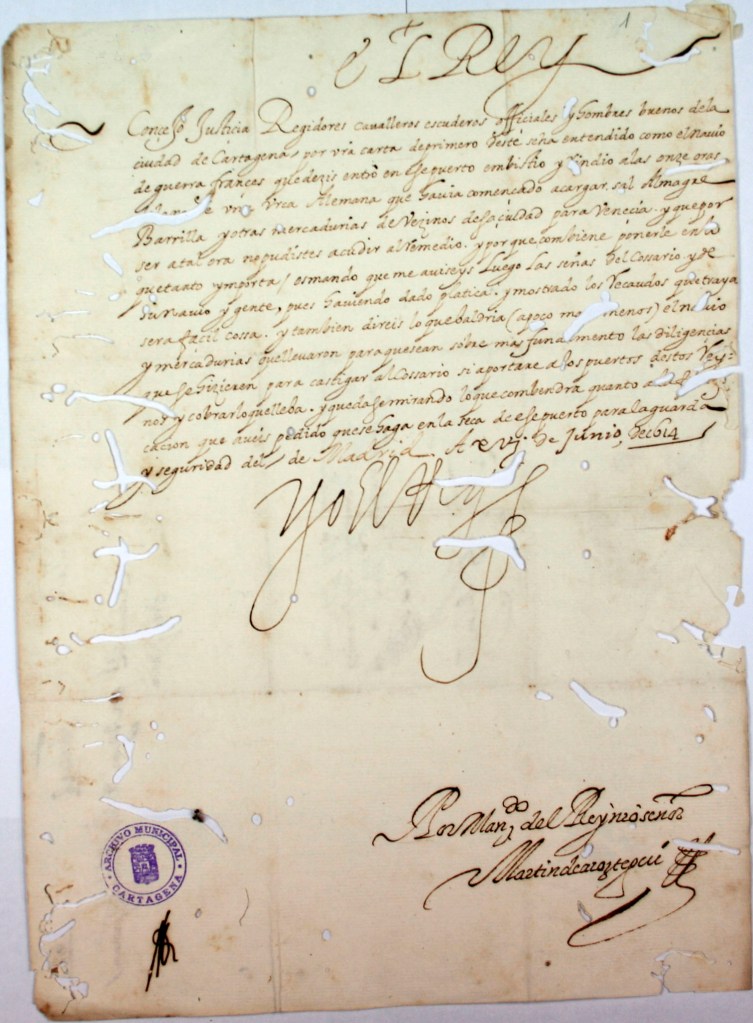 1
El Rey
Concejo Justicia Regidores caualleros escuderos officiales y hombres buenos dela
ciudad de Cartagena, por vrã carta de primero deste seha entendido como el nauio
de guerra frances que dezis entró en ese puerto embistio y rindio alas onze oras
vna Vrca Alemana que hauia començado acargar sal Almagre
Barrilla y otras mercadurias de Vezinos desa ciudad para Venecia. y que por
ser a tal ora no pudistes acudir al remedio. y porque combiene ponerle en lo
que tanto ymporta / os mando que me auiseys luego las señas del Cossario y de
su nauio y gente, pues hauiendo dado platica. y mostrado los Recaudos que traya
sera facil cossa. y tambien direis lo que baldria (apoco mas menos) el nauio
y mercadurias que lleuaron para que sean sobre mas fundamento las diligencias
que se hizieren para castigar al Cossario si aportare a los puertos destos Rey-
nos y cobrar lo que lleba. y queda se mirando lo que combendra quanto a la
cacion que aueis pedido que se haga en la de ese puerto para la guarda
y seguridad del / de Madrid A xvj. de Junio, de 1614
Yo El Rey
Por Man.do del Rey nrõ señor
Martin de
ARCHIVO MUNICIPAL
CARTAGENA